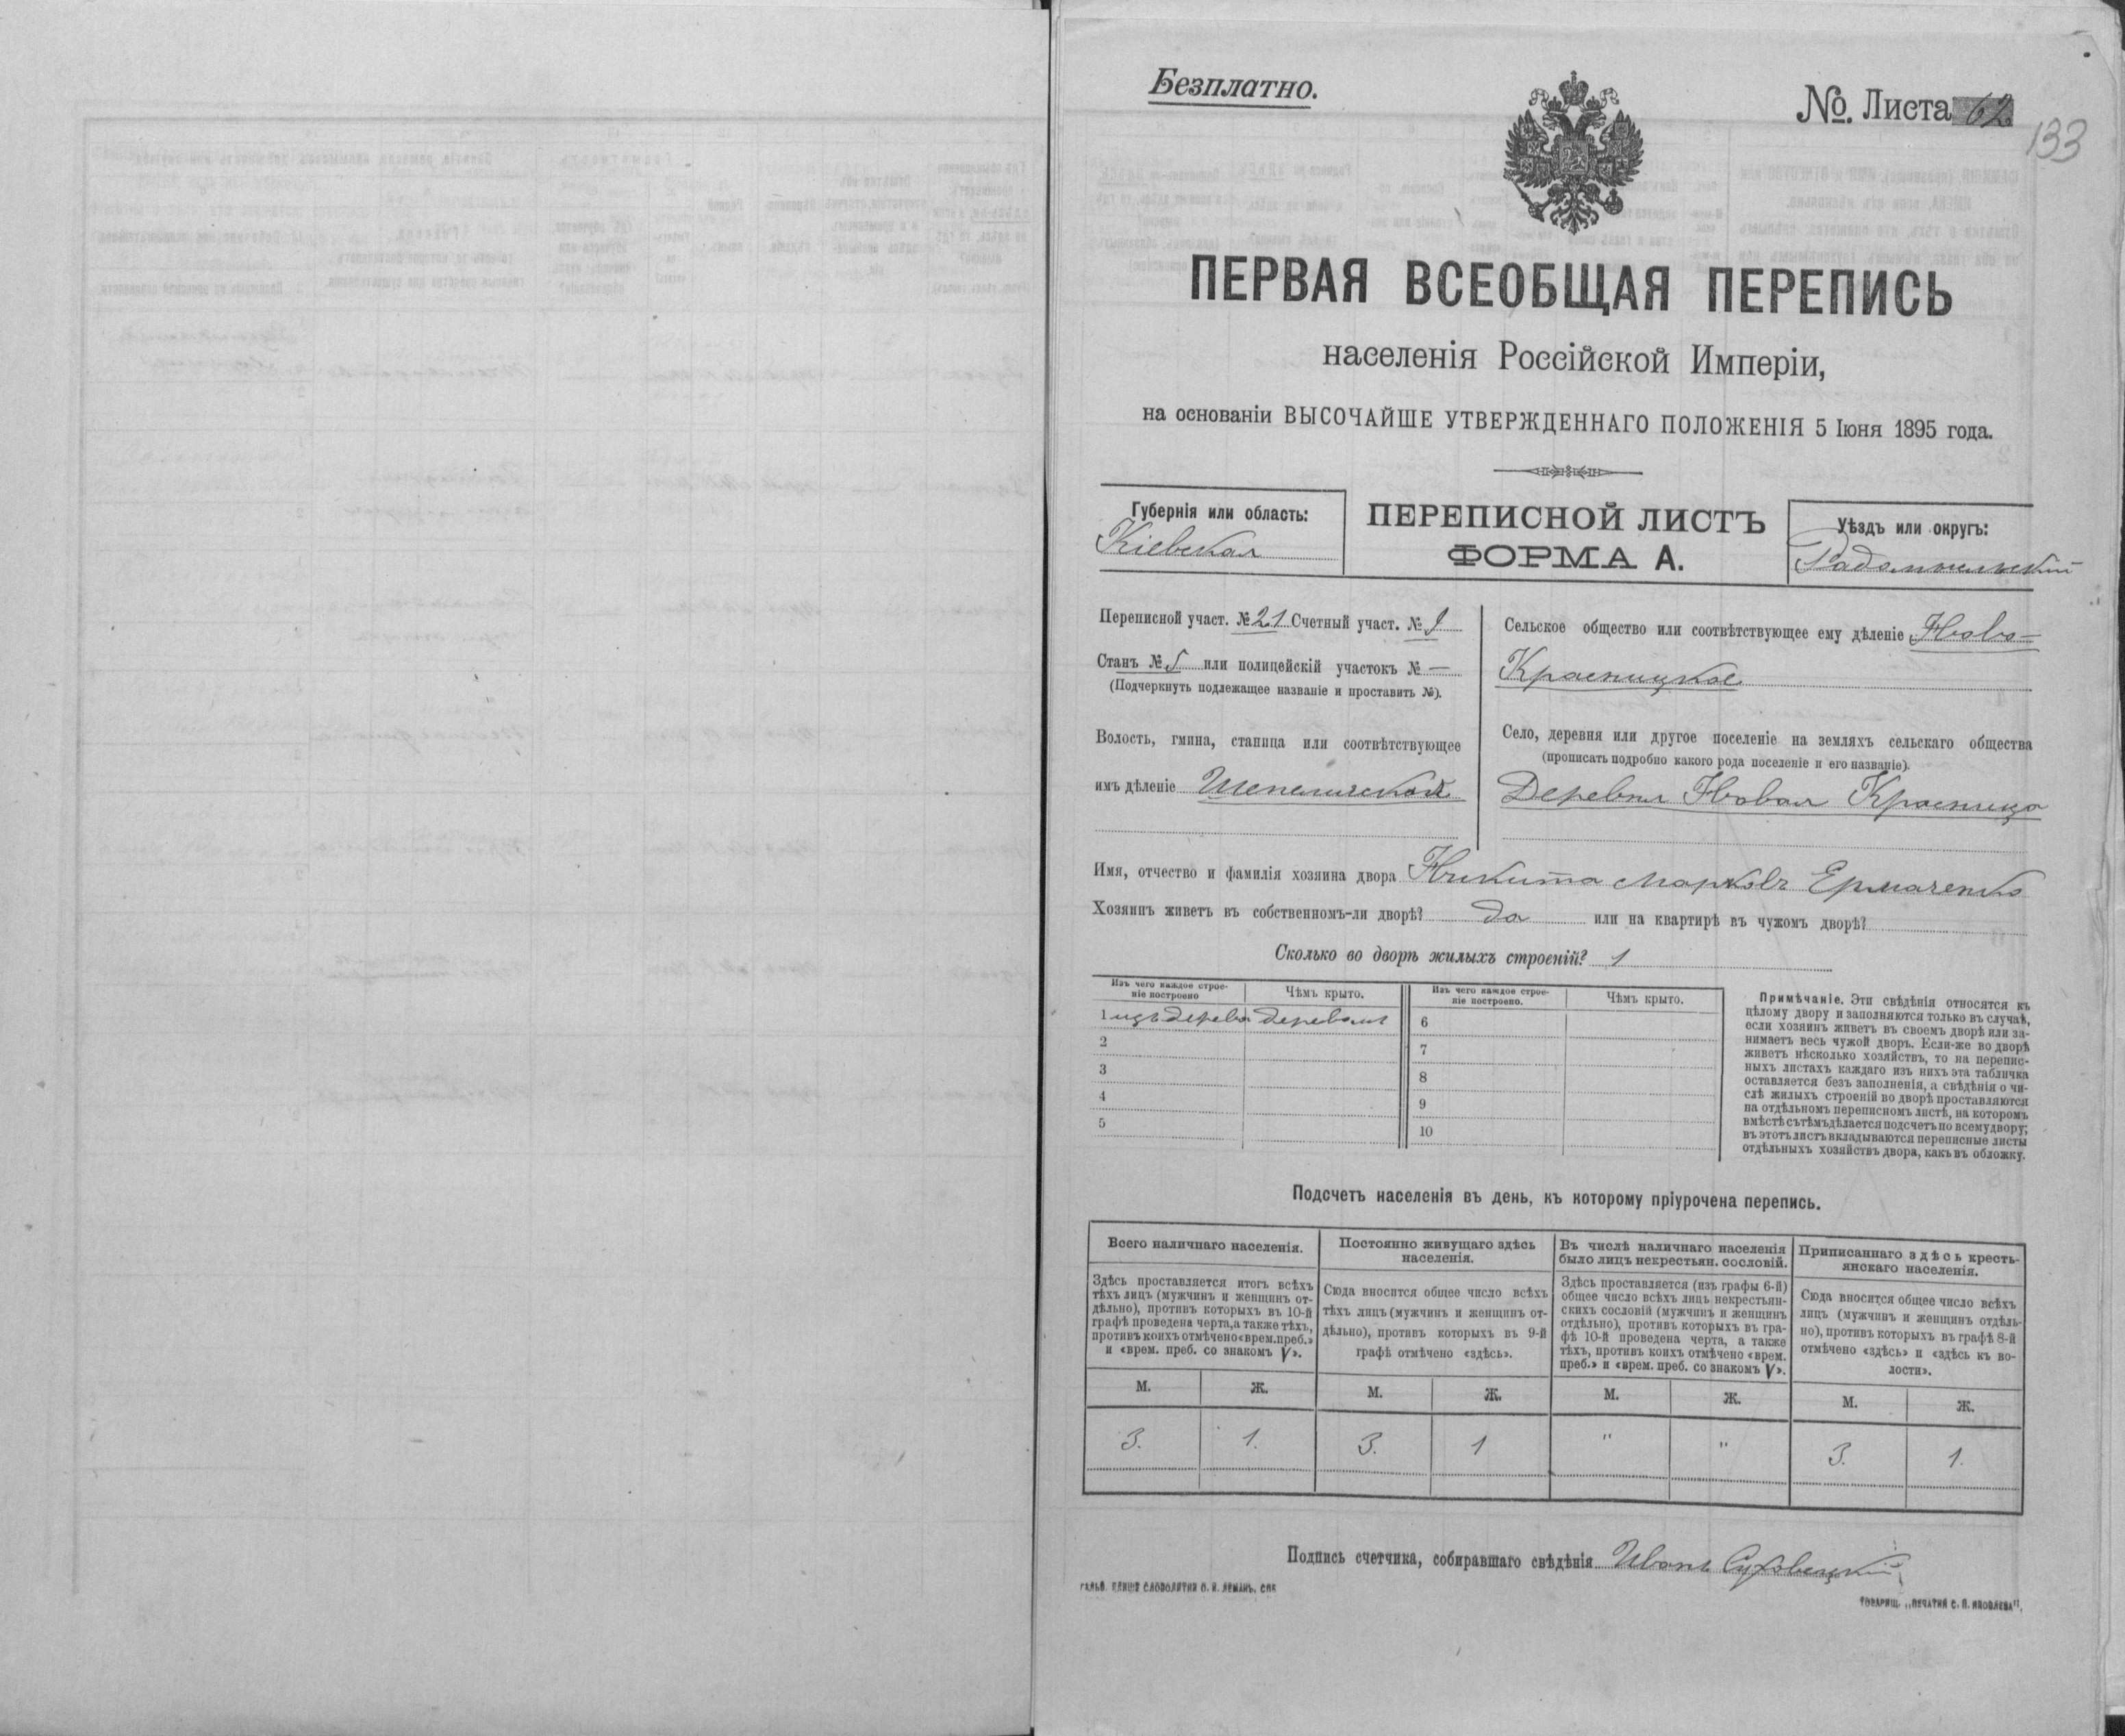 Безплатно.
№. Листа 62
133
ПЕРВАЯ ВСЕОБЩАЯ ПЕРЕПИСЬ
населенія Россійской Имперіи,
на основаніи ВЫСОЧАЙШЕ УТВЕРЖДЕННАГО ПОЛОЖЕНІЯ 5 Іюня 1895 года.
Губернія или область:
Кіевская
ПЕРЕПИСНОЙ ЛИСТЪ
ФОРМА А.
Уѣздъ или округъ:
Радомысльскій
Переписной участ. № 21 Счетный участ. №
Станъ № 5 или полицейскій участокъ № —
(Подчеркнуть подлежащее названіе и проставить №).
Волость, гмина, станица или соотвѣтствующее
имъ дѣленіе Шепеличская
Сельское общество или соотвѣтствующее ему дѣленіе Ново-
Красницкое
Село, деревня или другое поселеніе на земляхъ сельскаго общества
(прописать подробно какого рода поселеніе и его названіе).
Деревня Новая Красница
Имя, отчество и фамилія хозяина двора Никита Марковъ Ермаченко
Хозяинъ живетъ въ собственномъ-ли дворѣ? да или на квартирѣ въ чужомъ дворѣ?
Сколько во дворѣ жилыхъ строеній? 1
Изъ чего каждое строе-
ніе построено
Чѣмъ крыто.
Изъ чего каждое строе-
ніе построено.
Чѣмъ крыто.
1 изъ дерева деревомъ
2
3
4
5
6
7
8
9
10
Примѣчаніе. Эти свѣдѣнія относятся къ
цѣлому двору и заполняются только въ случаѣ,
если хозяинъ живетъ въ своемъ дворѣ или за-
нимаетъ весь чужой дворъ. Если-же во дворѣ
живетъ нѣсколько хозяйствъ, то на перепис-
ныхъ листахъ каждаго изъ нихъ эта табличка
оставляется безъ заполненія, а свѣдѣнія о чи-
слѣ жилыхъ строеній во дворѣ проставляются
на отдѣльномъ переписномъ листѣ, на которомъ
вмѣстѣ съ тѣмъ дѣлается подсчетъ по всему двору;
въ этотъ листъ вкладываются переписные листы
отдѣльныхъ хозяйствъ двора, какъ въ обложку.
Подсчетъ населенія въ день, къ которому пріурочена перепись.
Всего наличнаго населенія.
Здѣсь проставляется итогъ всѣхъ
тѣхъ лицъ (мужчинъ и женщинъ от-
дѣльно), противъ которыхъ въ 10-й
графѣ проведена черта, а также тѣхъ,
противъ коихъ отмѣчено «врем. преб.»
и «врем. преб. со знакомъ V».
Постоянно живущаго здѣсь
населенія.
Сюда вносится общее число всѣхъ
тѣхъ лицъ (мужчинъ и женщинъ от-
дѣльно), противъ которыхъ въ 9-й
графѣ отмѣчено «здѣсь».
Въ числѣ наличнаго населенія
было лицъ некрестьян. сословій.
Здѣсь проставляется (изъ графы 6-й)
общее число всѣхъ лицъ некрестьян-
скихъ сословій (мужчинъ и женщинъ
отдѣльно), противъ которыхъ въ гра-
фѣ 10-й проведена черта, а также
тѣхъ, противъ коихъ отмѣчено «врем.
преб.» и «врем. преб. со знакомъ V».
Приписаннаго здѣсь кресть-
янскаго населенія.
Сюда вносится общее число всѣхъ
лицъ (мужчинъ и женщинъ отдѣль-
но), противъ которыхъ въ графѣ 8-й
отмѣчено «здѣсь» и «здѣсь къ во-
лости».
М. Ж. М. Ж. М. Ж. М. Ж.
3. 1. 3. 1 " " 3. 1.
Подпись счетчика, собиравшаго свѣдѣнія Иванъ Суховецкій
ГАЛЬВ. КЛИШЕ СЛОВОЛИТНИ О. И. ЛЕМАНЪ, СПБ
ТОВАРИЩ. „ПЕЧАТНЯ С. П. ЯКОВЛЕВА".